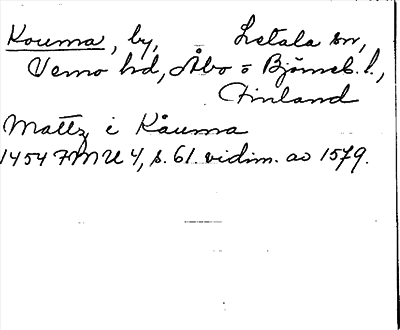 Kouma, by, Letala sn,
Vemo hd, Åbo o Björneb. l.,
Finland
Mattz i Kåuma
1454 FMU 4, s. 61 vidim. av 1579.